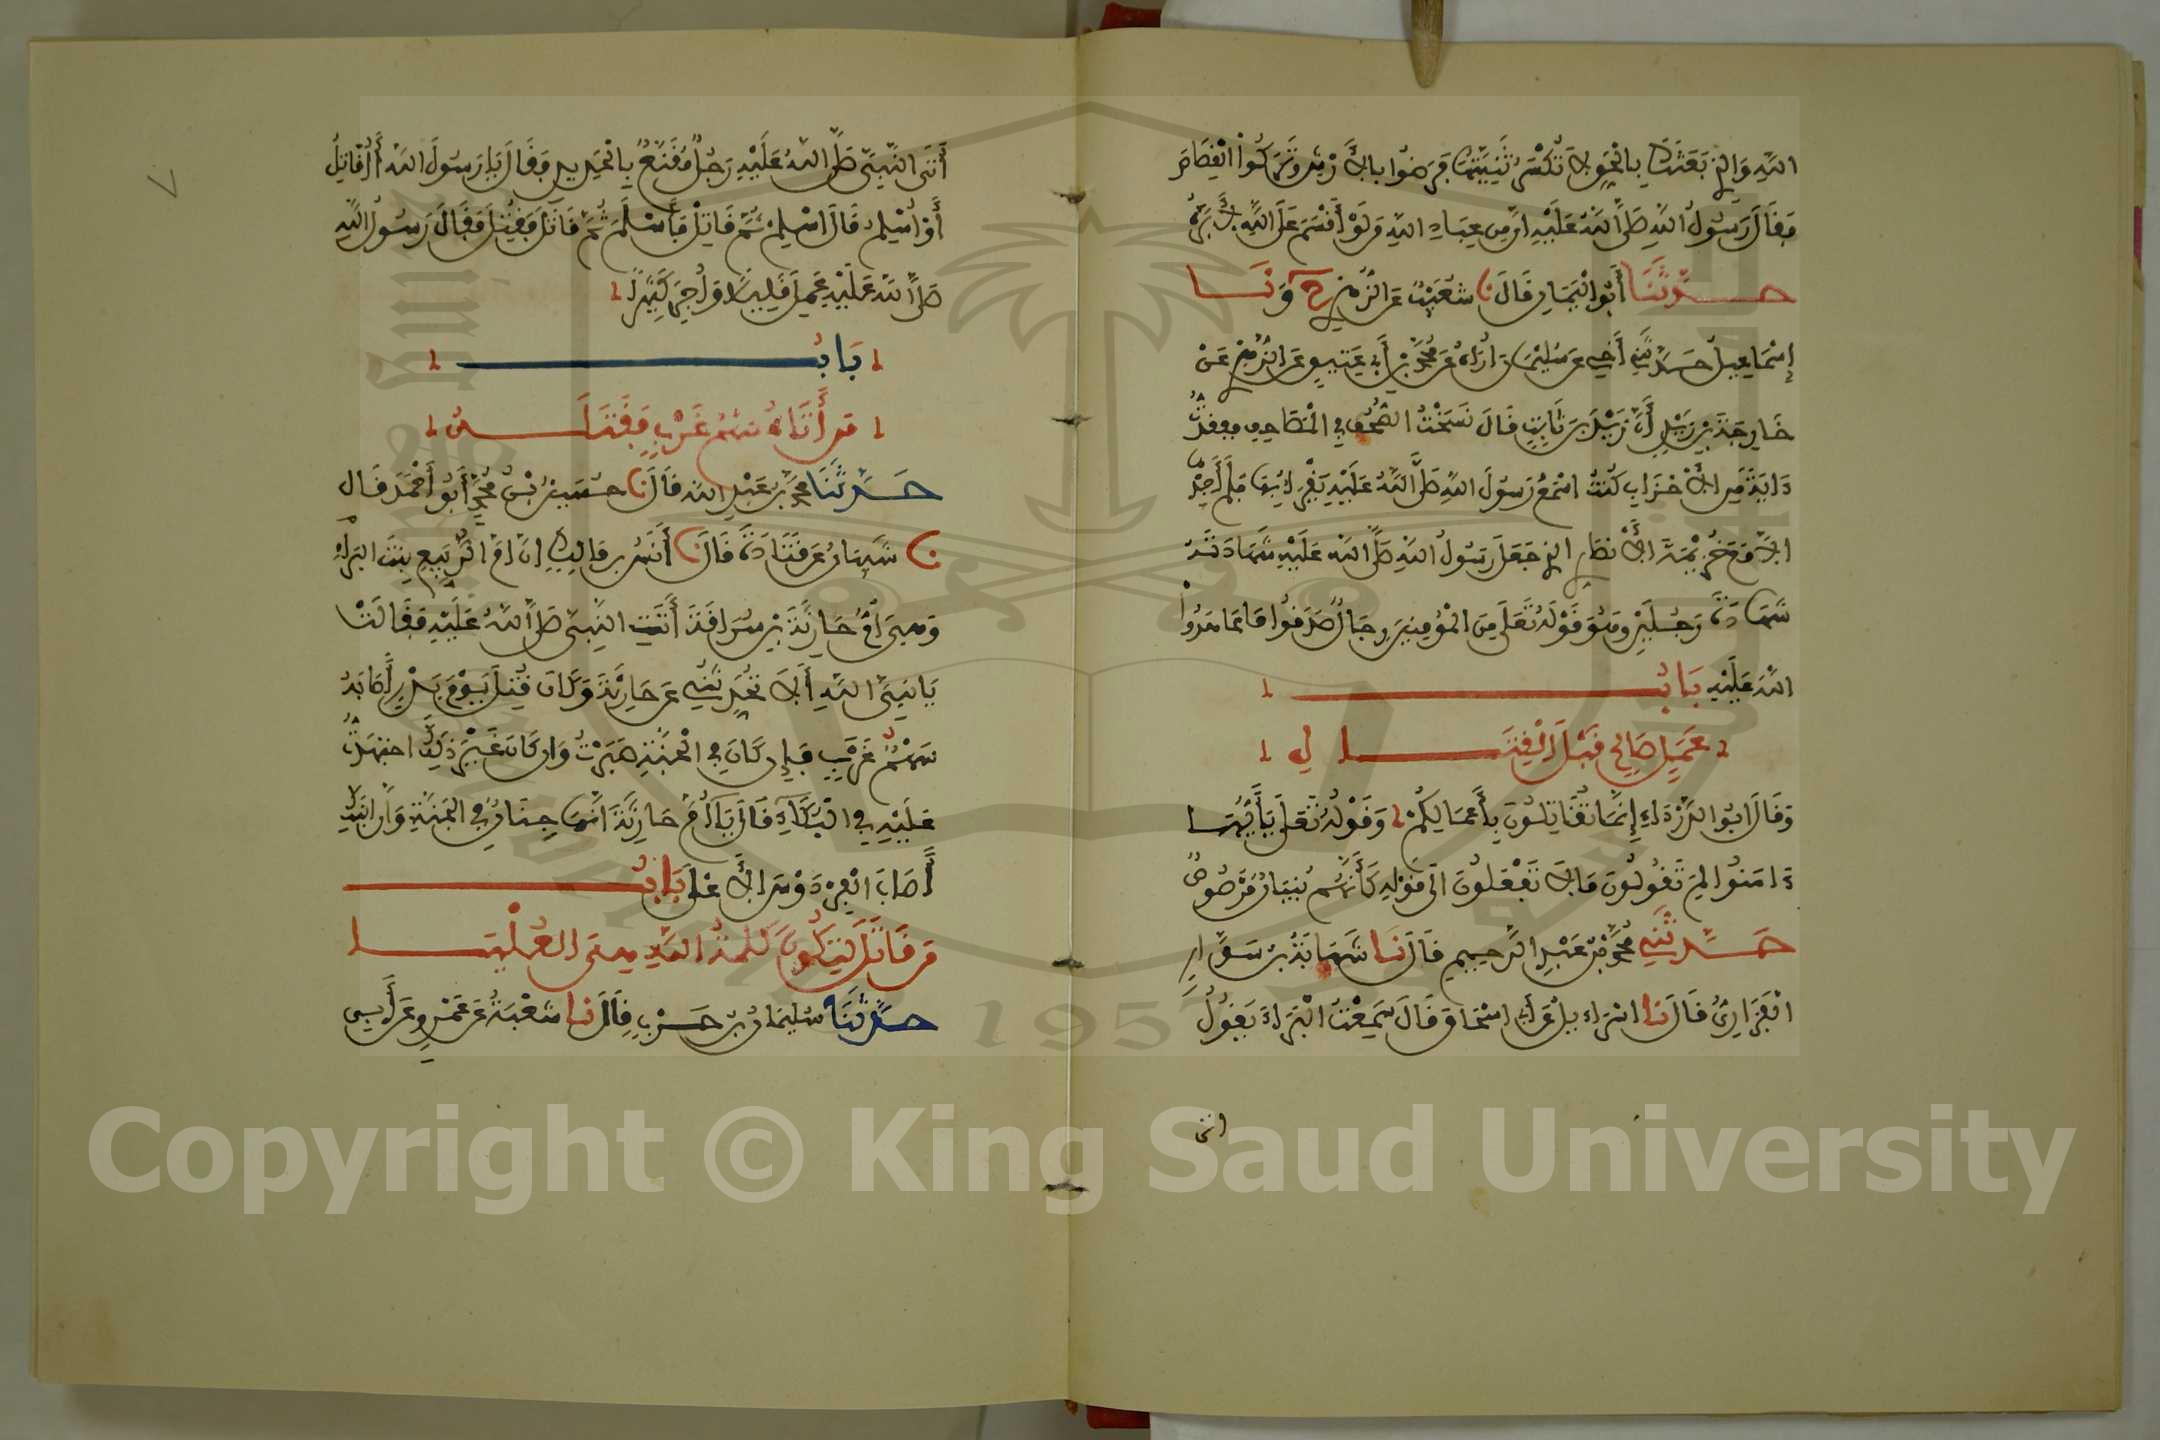 اللهِ وَالذِي بَعَثَكَ بِالْحَقِّ لَا تُكْسَرُ ثَنِيَّتُهَا فَرَضُوا بِالْأَرْشِ وَتَرَكُوا الْقِصَاصَ
فَقَالَ رَسُولُ اللهِ صَلَّى اللهُ عَلَيْهِ إِنَّ مِنْ عِبَادِ اللهِ مَنْ لَوْ أَقْسَمَ عَلَى اللهِ لَأَبَرَّهُ
حَدَّثَنَا أَبُو الْيَمَانِ قَالَ نا شُعَيْبٌ عَنِ الزُّهْرِيِّ ح وَنَا
إِسْمَاعِيلُ حَدَّثَنِي أَخِي عَنْ سُلَيْمَانَ أُرَاهُ عَنْ مُحَمَّدِ بْنِ أَبِي عَتِيقٍ عَنِ الزُّهْرِيِّ عَنْ
خَارِجَةَ بْنِ زَيْدٍ أَنَّ زَيْدَ بْنَ ثَابِتٍ قَالَ نَسَخْتُ الصُّحُفَ فِي الْمَصَاحِفِ فَفَقَدْتُ
ءَايَةً مِنَ الْأَحْزَابِ كُنْتُ أَسْمَعُ رَسُولَ اللهِ صَلَّى اللهُ عَلَيْهِ يَقْرَأُ بِهَا فَلَمْ أَجِدْهَا
إِلَّا مَعَ خُزَيْمَةَ الْأَنْصَارِيِّ الذِي جَعَلَ رَسُولُ اللهِ صَلَّى اللهُ عَلَيْهِ شَهَادَتَهُ
شَهَادَةَ رَجُلَيْنِ وَهُوَ قَوْلُهُ تَعَلَى مِنَ الْمُؤْمِنِينَ رِجَالٌ صَدَقُوا مَا عَاهَدُوا
اللهَ عَلَيْهِ بَابُ
عَمَلٍ صَالِحٍ قَبْلَ الْقِتَالِ
وَقَالَ أَبُو الدَّرْدَاءِ إِنَّمَا تُقَاتِلُونَ بِأَعْمَالِكُمْ وَقَوْلُهُ تَعَلَى يَأَيُّهَا
ءَامَنُوا لِمَ تَقُولُونَ مَا لَا تَفْعَلُونَ إِلَى قَوْلِهِ كَأَنَّهُمْ بُنْيَانٌ مَرْصُوصٌ
حَدَّثَنِي مُحَمَّدُ بْنُ عَبْدِ الرَّحِيمِ قَالَ نَا شَبَابَةُ بْنُ سَوَّارٍ
الْفَزَارِيُّ قَالَ نَا إِسْرَاءِيلُ عَنْ أَبِي إِسْحَاقَ قَالَ سَمِعْتُ الْبَرَاءَ يَقُولُ
اتى
أَتَى النَّبِيَّ صَلَّى اللهُ عَلَيْهِ رَجُلٌ مُقَنَّعٌ بِالْحَدِيدِ فَقَالَ يَا رَسُولَ اللهِ أُقَاتِلُ
أَوْ أُسْلِمُ قَالَ أَسْلِمْ ثُمَّ قَاتِلْ فَأَسْلَمَ ثُمَّ قَاتَلَ فَقُتِلَ فَقَالَ رَسُولُ اللهِ
صَلَّى اللهُ عَلَيْهِ عَمِلَ قَلِيلًا وَأُجِرَ كَثِيرًا
بَابُ
مَنْ أَتَاهُ سَهْمٌ غَرْبٌ فَقَتَلَهُ
حَدَّثَنَا مُحَمَّدُ بْنُ عَبْدِ اللهِ قَالَ نا حُسَيْنُ بْنُ مُحَمَّدٍ أَبُو أَحْمَدَ قَالَ
نا شَيْبَانُ عَنْ قَتَادَةَ قَالَ نا أَنَسُ بْنُ مَالِكٍ أَنَّ أُمَّ الرُّبَيِّعِ بِنْتَ الْبَرَاءِ
وَهِيَ أُمُّ حَارِثَةَ بْنِ سُرَاقَةَ أَتَتِ النَّبِيَّ صَلَّى اللهُ عَلَيْهِ فَقَالَتْ
يَا نَبِيَّ اللهِ أَلَا تُحَدِّثُنِي عَنْ حَارِثَةَ وَكَانَ قُتِلَ يَوْمَ بَدْرٍ أَصَابَهُ
سَهْمٌ غَرْبٌ فَإِنْ كَانَ فِي الْجَنَّةِ صَبَرْتُ وَإِنْ كَانَ غَيْرَ ذَلِكَ اجْتَهَدْتُ
عَلَيْهِ فِي الْبُكَاءِ قَالَ يَا أُمَّ حَارِثَةَ إِنَّهَا جِنَانٌ فِي الْجَنَّةِ وَإِنَّ ابْنَكِ
أَصَابَ الْفِرْدَوْسَ الْأَعْلَى بَابُ
مَنْ قَاتَلَ لِتَكُونَ كَلِمَةُ اللهِ هِيَ الْعُلْيَا
حَدَّثَنَا سُلَيْمَانُ بْنُ حَرْبٍ قَالَ نَا شُعْبَةُ عَنْ عَمْرٍو عَنْ أَبِي